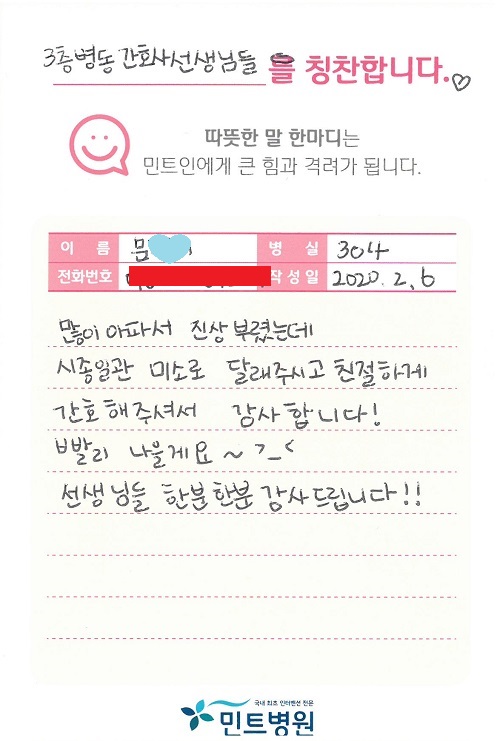 3층병동 간호사선생님들 을 칭찬합니다.
따뜻한 말 한마디는
민트인에게 큰 힘과 격려가 됩니다.
이 름 문 병 실 304
전화번호 작 성 일 2020. 2. 6
많이 아파서 진상 부렸는데
시종일관 미소로 달래주시고 친절하게
간호해주셔서 감사합니다!
빨리 나을게요~ >_<
선생님들 한분한분 감사드립니다!!
국내 최초 인터벤션 전문
민트병원